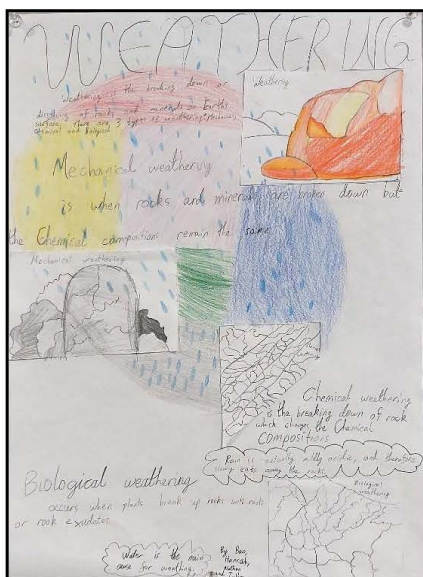 WEATHERING
Weathering is the breaking down or
dissolving of rocks and minerals on Earths
surface. There are 3 types of weathering: Mechanical,
chemical and Biological
Weathering
Mechanical weathering
is when rocks and minerals are broken down but
the Chemical compositions remain the same
Mechanical weathering
Chemical weathering
is the breaking down of rock
which changes the Chemical
compositions
Rain is actually mildly acidic, and therefore
slowly eats away the rocks.
Biological weathering
occurs when plants break up rocks with roots
or rook exudates.
Biological
weathering
Water is the main
cause for weathing.
By Bao,
Hannah,
and